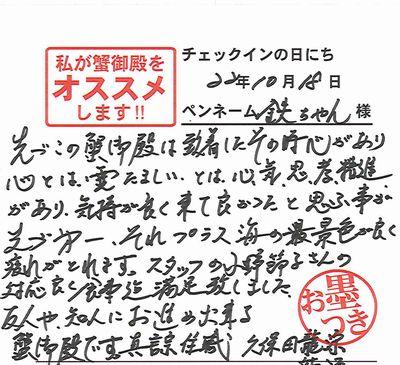 私が蟹御殿を
オススメ
します!!
チェックインの日にち
22年10月18日
ペンネーム 鉄ちゃん 様
先づこの蟹御殿は到着したその時心があり
心とは、霊たましい、とは、心、気、思、考、精進
があり、気持が良く来て良かつたと思ふ事が
先づ第一、それプラス海の最景色が良く
疲れがとれます。スタッフの小野鈴子さんの
対応良く食事迄満足致しました
友人や、知人にお進め出来る
蟹御殿です。真諒住職 久保田龍宗
お墨つき